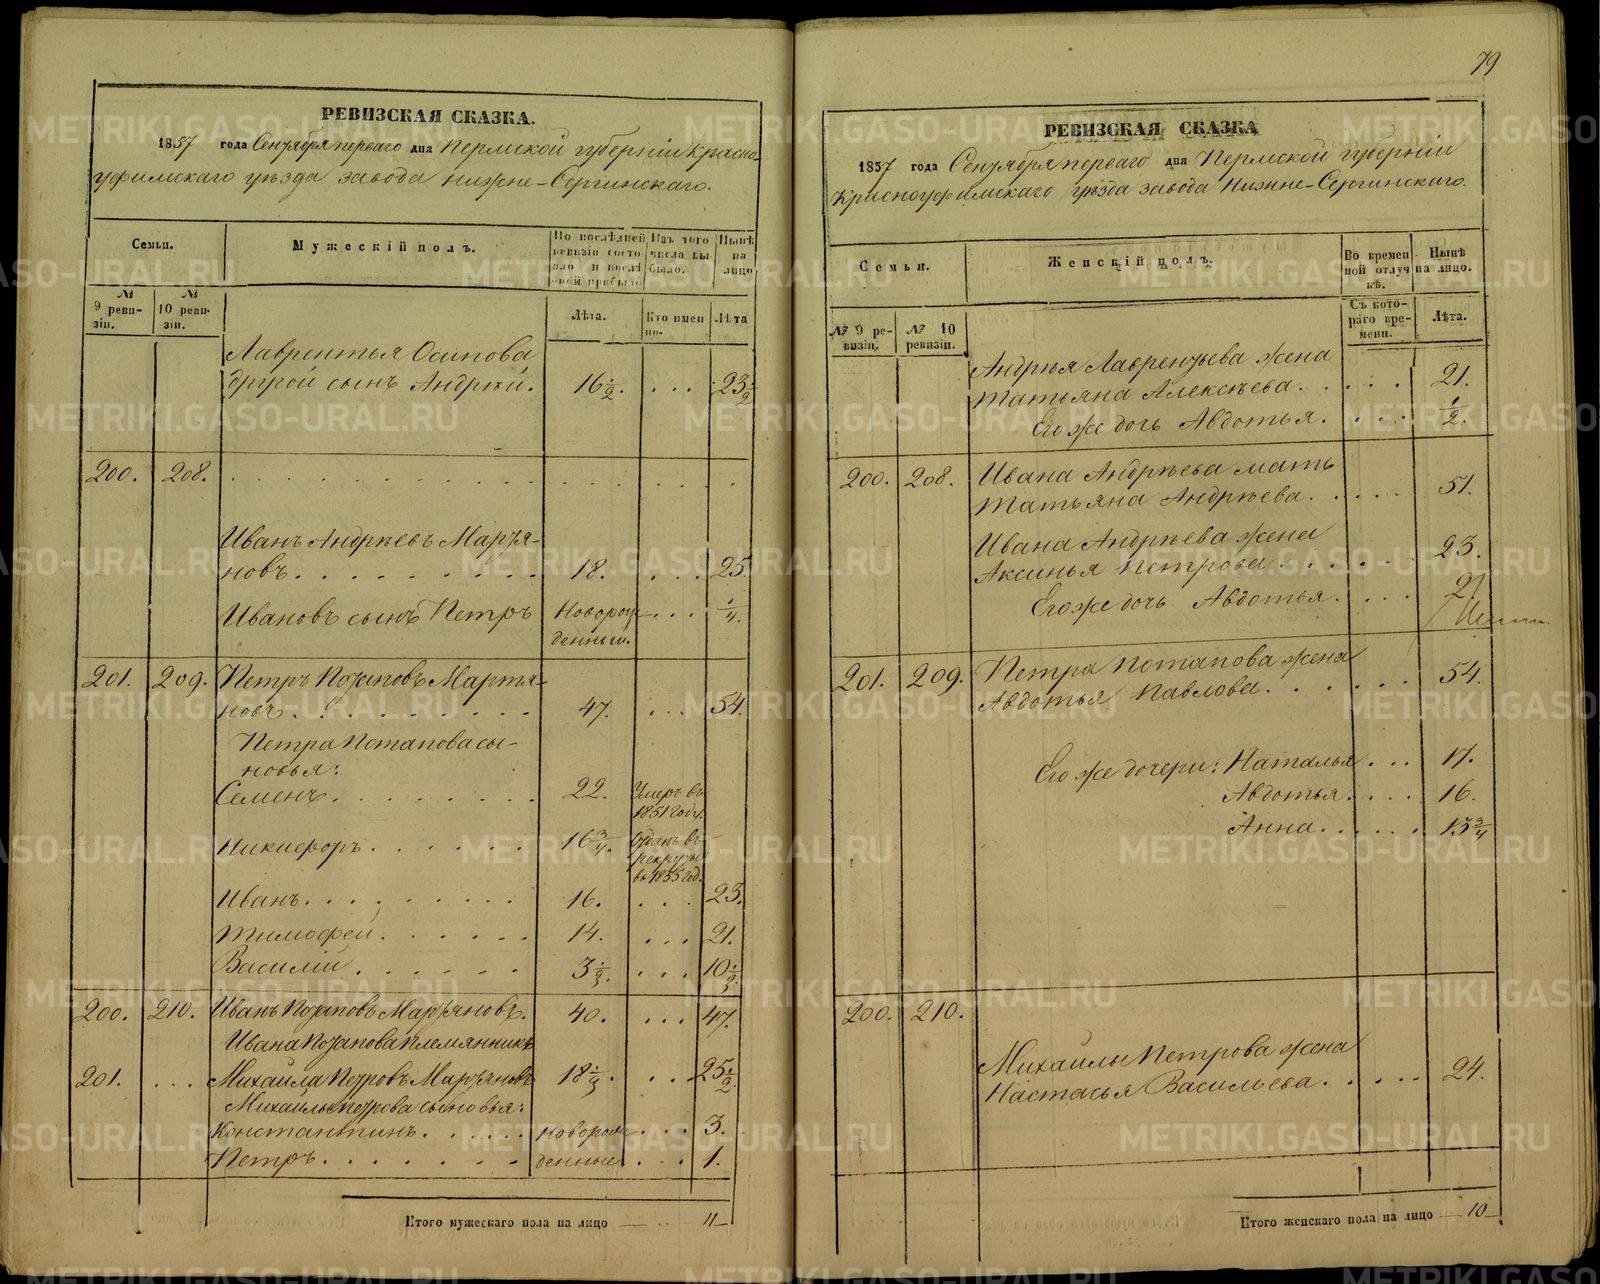 79
РЕВИЗСКАЯ СКАЗКА.
1857 года Сентября перваго дня Пермской губерніи Красно-
уфимскаго уѣзда завода Нижне-Сергинскаго.
Семьи.
Мужескій полъ.
По послѣдней ревизіи состояло и послѣ оной прибыло
Изъ того числа выбыло.
Нынѣ на лицо
№ 9 ревизіи.
№ 10 ревизіи.
Лѣта.
Кто именно.
Лѣта
Лаврентья Осипова
другой сынъ Андрей. 16½. ... 23½
200. 208.
Иванъ Андрѣевъ Мартья-
новъ. 18. ... 25.
Ивановъ сынъ Петръ Новорож- ... ¼
денный.
201. 209. Петръ Потаповъ Мартья-
новъ. 47. ... 54.
Петра Потапова сы-
новья:
Семенъ. 22. Умеръ въ
1851 году.
Никифоръ. 16¾. Отданъ въ
рекруты
въ 1855 год.
Иванъ. 16. ... 23.
Тимофей. 14. ... 21.
Василій. 3½. ... 10½
200. 210. Иванъ Потаповъ Мартьяновъ. 40. ... 47.
Ивана Потапова племянникъ
201. ... Михайла Петровъ Мартьяновъ 18½. .. 25½.
Михайлы Петрова сыновья:
Константинъ. Новорож- ... 3.
Петръ. денные ... 1.
Итого мужескаго пола на лицо — 11
РЕВИЗСКАЯ СКАЗКА
1857 года Сентября перваго дня Пермской губерніи
Красноуфимскаго уѣзда завода Нижне-Сергинскаго.
Семьи.
Женскій полъ.
Во временной отлучкѣ.
Нынѣ на лицо.
№ 9 ревизіи.
№ 10 ревизіи.
Съ котораго времени.
Лѣта.
Андрея Лаврентьева жена
Татьяна Алексѣева. 21.
Его же дочь Авдотья. ½.
200. 208. Ивана Андрѣева мать
Татьяна Андрѣева. 51.
Ивана Андрѣева жена
Аксинья Петрова. 23.
Его же дочь Авдотья.
201. 209. Петра Потапова жена
Авдотья Павлова. 54.
Его же дочери: Наталья ... 17.
Авдотья. 16.
Анна. 13¾
200. 210.
Михайлы Петрова жена
Настасья Васильева. 24.
Итого женскаго пола на лицо — 10
METRIKI.GASO-URAL.RU